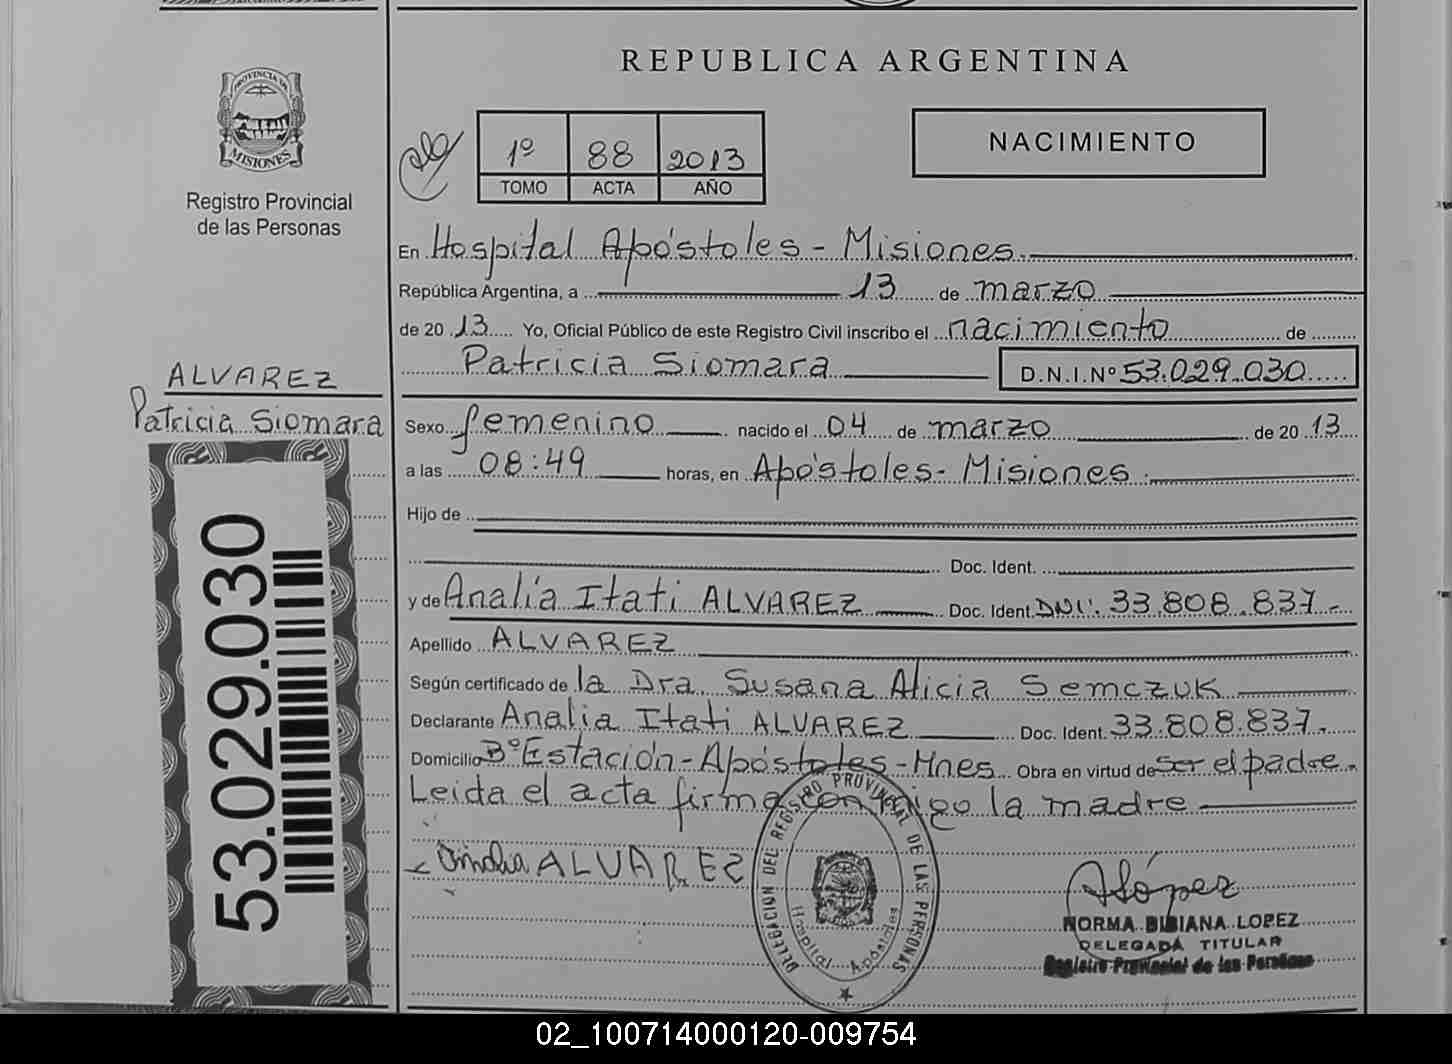 REPUBLICA ARGENTINA
PROVINCIA DE
MISIONES
Registro Provincial
de las Personas
1º 88 2013
TOMO ACTA AÑO
NACIMIENTO
En Hospital Apóstoles - Misiones.
República Argentina, a 13 de marzo
de 20 13 Yo, Oficial Público de este Registro Civil inscribo el nacimiento de
Patricia Siomara D.N.I.Nº 53.029.030
ALVAREZ
Patricia Siomara
53.029.030
Sexo femenino nacido el 04 de marzo de 20 13
a las 08:49 horas, en Apóstoles - Misiones.
Hijo de
Doc. Ident.
y de Analía Itati ALVAREZ Doc. Ident. DNI: 33.808.837.-
Apellido ALVAREZ
Según certificado de la Dra. Susana Alicia Semczuk
Declarante Analia Itati ALVAREZ Doc. Ident. 33.808.837.-
Domicilio Bº Estación - Apóstoles - Mnes Obra en virtud de ser el padre.
Leida el acta firma conmigo la madre
ALVAREZ
DELEGACION DEL REGISTRO PROVINCIAL DE LAS PERSONAS
Hospital Apóstoles
López
NORMA BIBIANA LOPEZ
DELEGADA TITULAR
Registro Provincial de las Personas
02_100714000120-009754